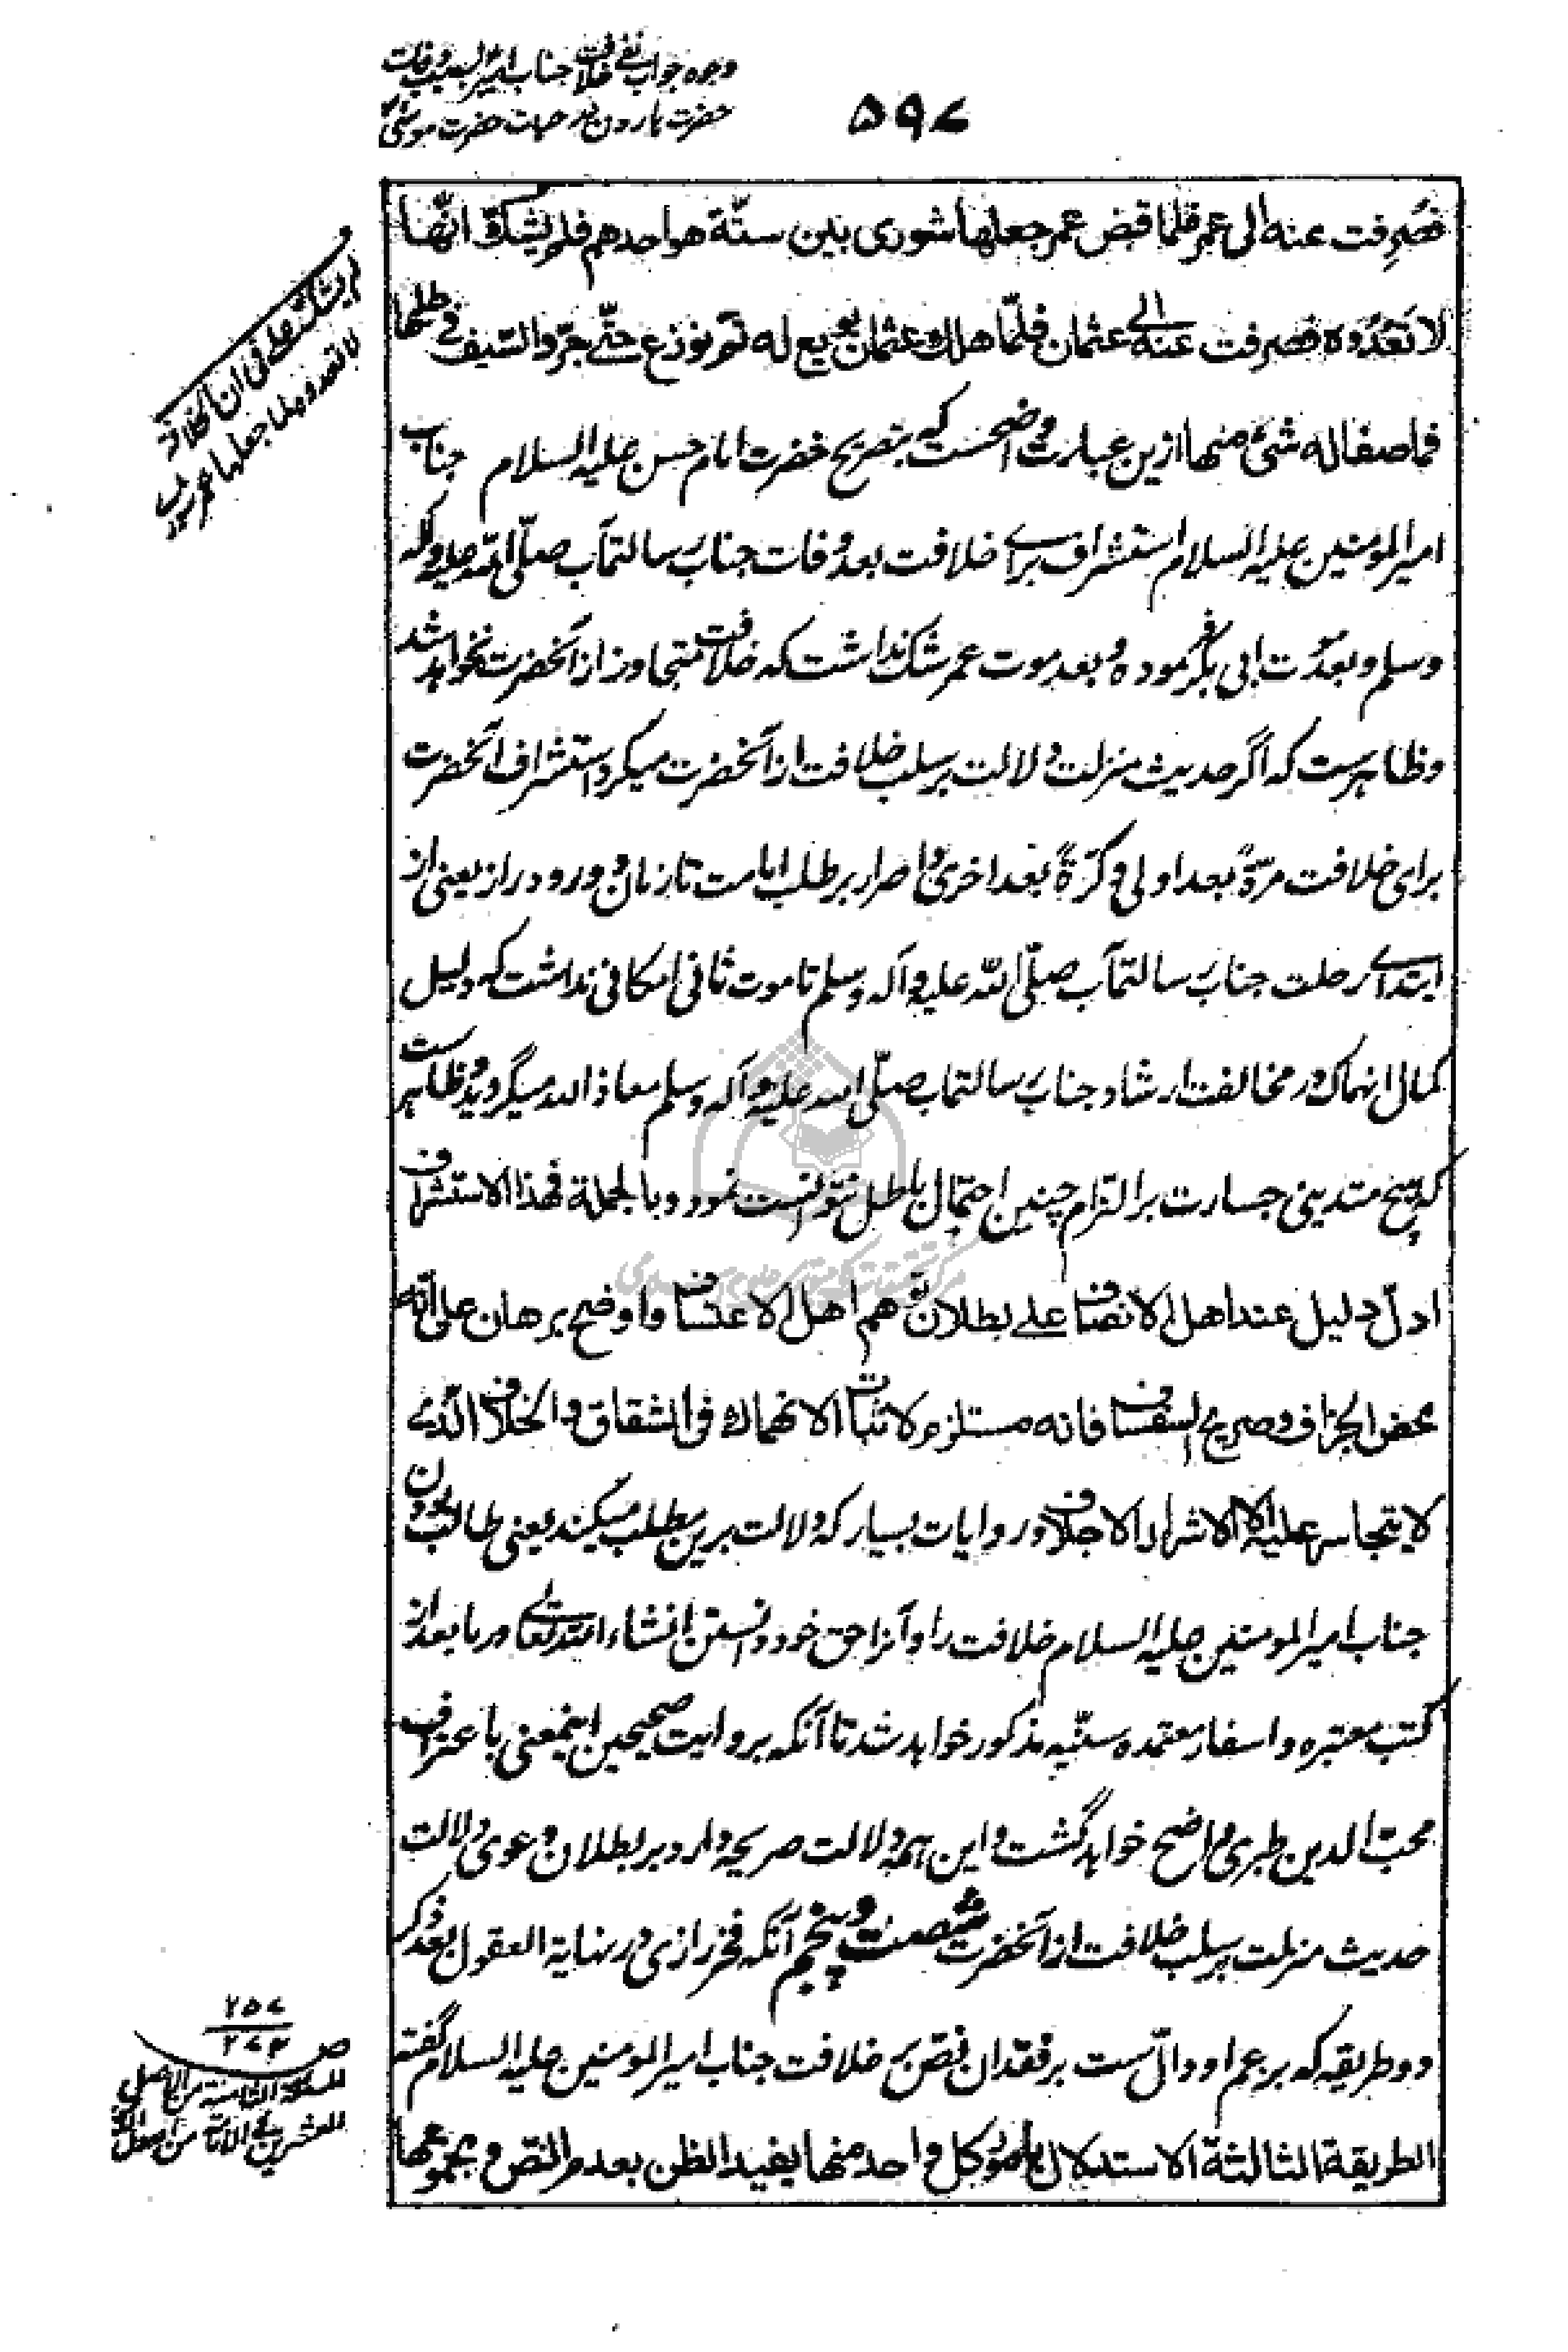 وجوه جواب نفی خلافت جناب امیر بسبب وفات
حضرت هارون بعد حیات حضرت موسی
۵۹۷
فصرفت عنه الی عمر فلما قبض عمر جعلها شوری بین ستّة هو احدهم فلم یشک انّها
لا تعدوه فصرفت عنه الی عثمان فلمّا هلک عثمان بویع له ثم نوزع حتّی جرّد السّیف فی طلبها
فما صفا له شئ منها ازین عبارت واضحست که بتصریح حضرت امام حسن علیه السلام جناب
امیر المومنین علیه السلام استشراف برای خلافت بعد وفات جناب رسالتمآب صلّی الله علیه و آله
وسلم و بعد موت ابی بکر فرموده و بعد موت عمر شک نداشت که خلافت متجاوز از آنحضرت نخواهد شد
و ظاهرست که اگر حدیث منزلت دلالت بر سلب خلافت از آنحضرت میکرد استشراف آنحضرت
برای خلافت مرّةً بعد اولی و کرّةً بعد اخری و اصرار بر طلب امامت تا زمان دور و دراز یعنی از
ابتدای رحلت جناب رسالتمآب صلّی الله علیه و آله وسلم تا موت ثانی امکانی نداشت که دلیل
کمال انهماک در مخالفت ارشاد جناب رسالتمآب صلّی الله علیه و آله وسلم معاذ الله میگردید و ظاهرست
که هیچ متدینی جسارت بر التزام چنین احتمال باطل نتوانست نمود و بالجملة فهذا الاستشراف
ادلّ دلیل عند اهل الانصاف علی بطلان توهم اهل الاعتساف و اوضح برهان علی انّه
محض الجزاف و صریح السفساف فانه مستلزم لاثبات الانهماک فی الشقاق و الخلاف الّذی
لا یتجاسر علیه الا الاشرار الاجلاف و روایات بسیار که دلالت برین مطلب میکند یعنی طالب بودن
جناب امیر المومنین علیه السلام خلافت را و آنرا حق خود دانستن انشاء الله تعالی در ما بعد از
کتب معتبره و اسفار معتمده سنّیه مذکور خواهد شد تا آنکه بروایت صحیحین اینمعنی باعتراف
محبّ الدین طبری واضح خواهد گشت و این همه دلالت صریحه دارد بر بطلان دعوی دلالت
حدیث منزلت بر سلب خلافت از آنحضرت شصت و پنجم آنکه فخر رازی در نهایة العقول بعد ذکر
دو طریقه که بزعم او دالّ ست بر فقدان نصّ بر خلافت جناب امیر المومنین علیه السلام گفته
الطریقة الثالثة الاستدلال بامور کل واحد منها یفید الظن بعدم النص و مجموعها
لم یشک علی فی ان الخلافة
لا تعدوه لما جعلها عمر
۲۵۷
۲۷۳
ص
المسئلة الثامنة من الاصل
العشرین فی الامامة من